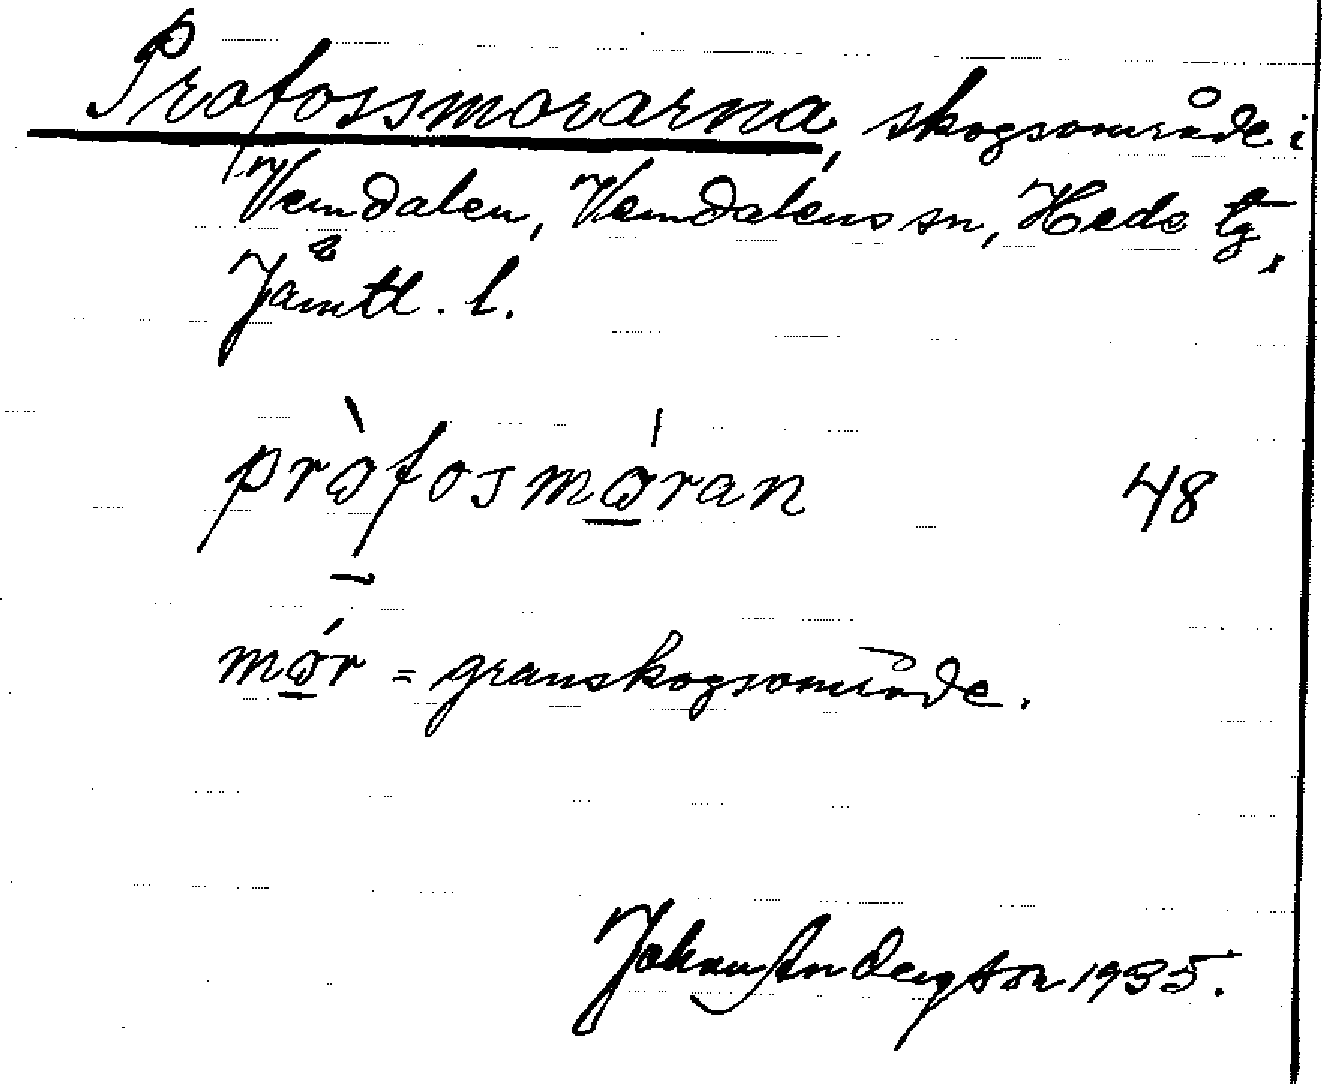 Profossmorarna, skogsområde i
Vemdalen, Vemdalens sn, Hede tg,
Jämtl. l.
pròfosmóran 48
mór = granskogsområde.
Johan Anderson 1935.